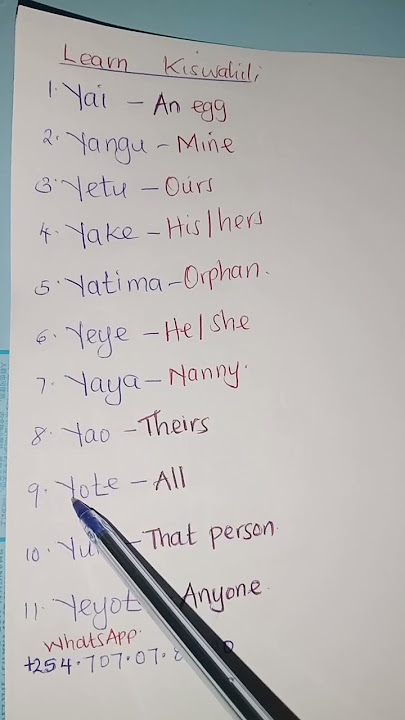 Learn Kiswahili
1. Yai - An egg
2. Yangu - Mine
3. Yetu - Ours
4. Yake - His/hers
5. Yatima - Orphan.
6. Yeye - He/she
7. Yaya - Nanny.
8. Yao - Theirs
9. Yote - All
10. - That person.
11. Anyone.
WhatsApp.
+254.707.07.